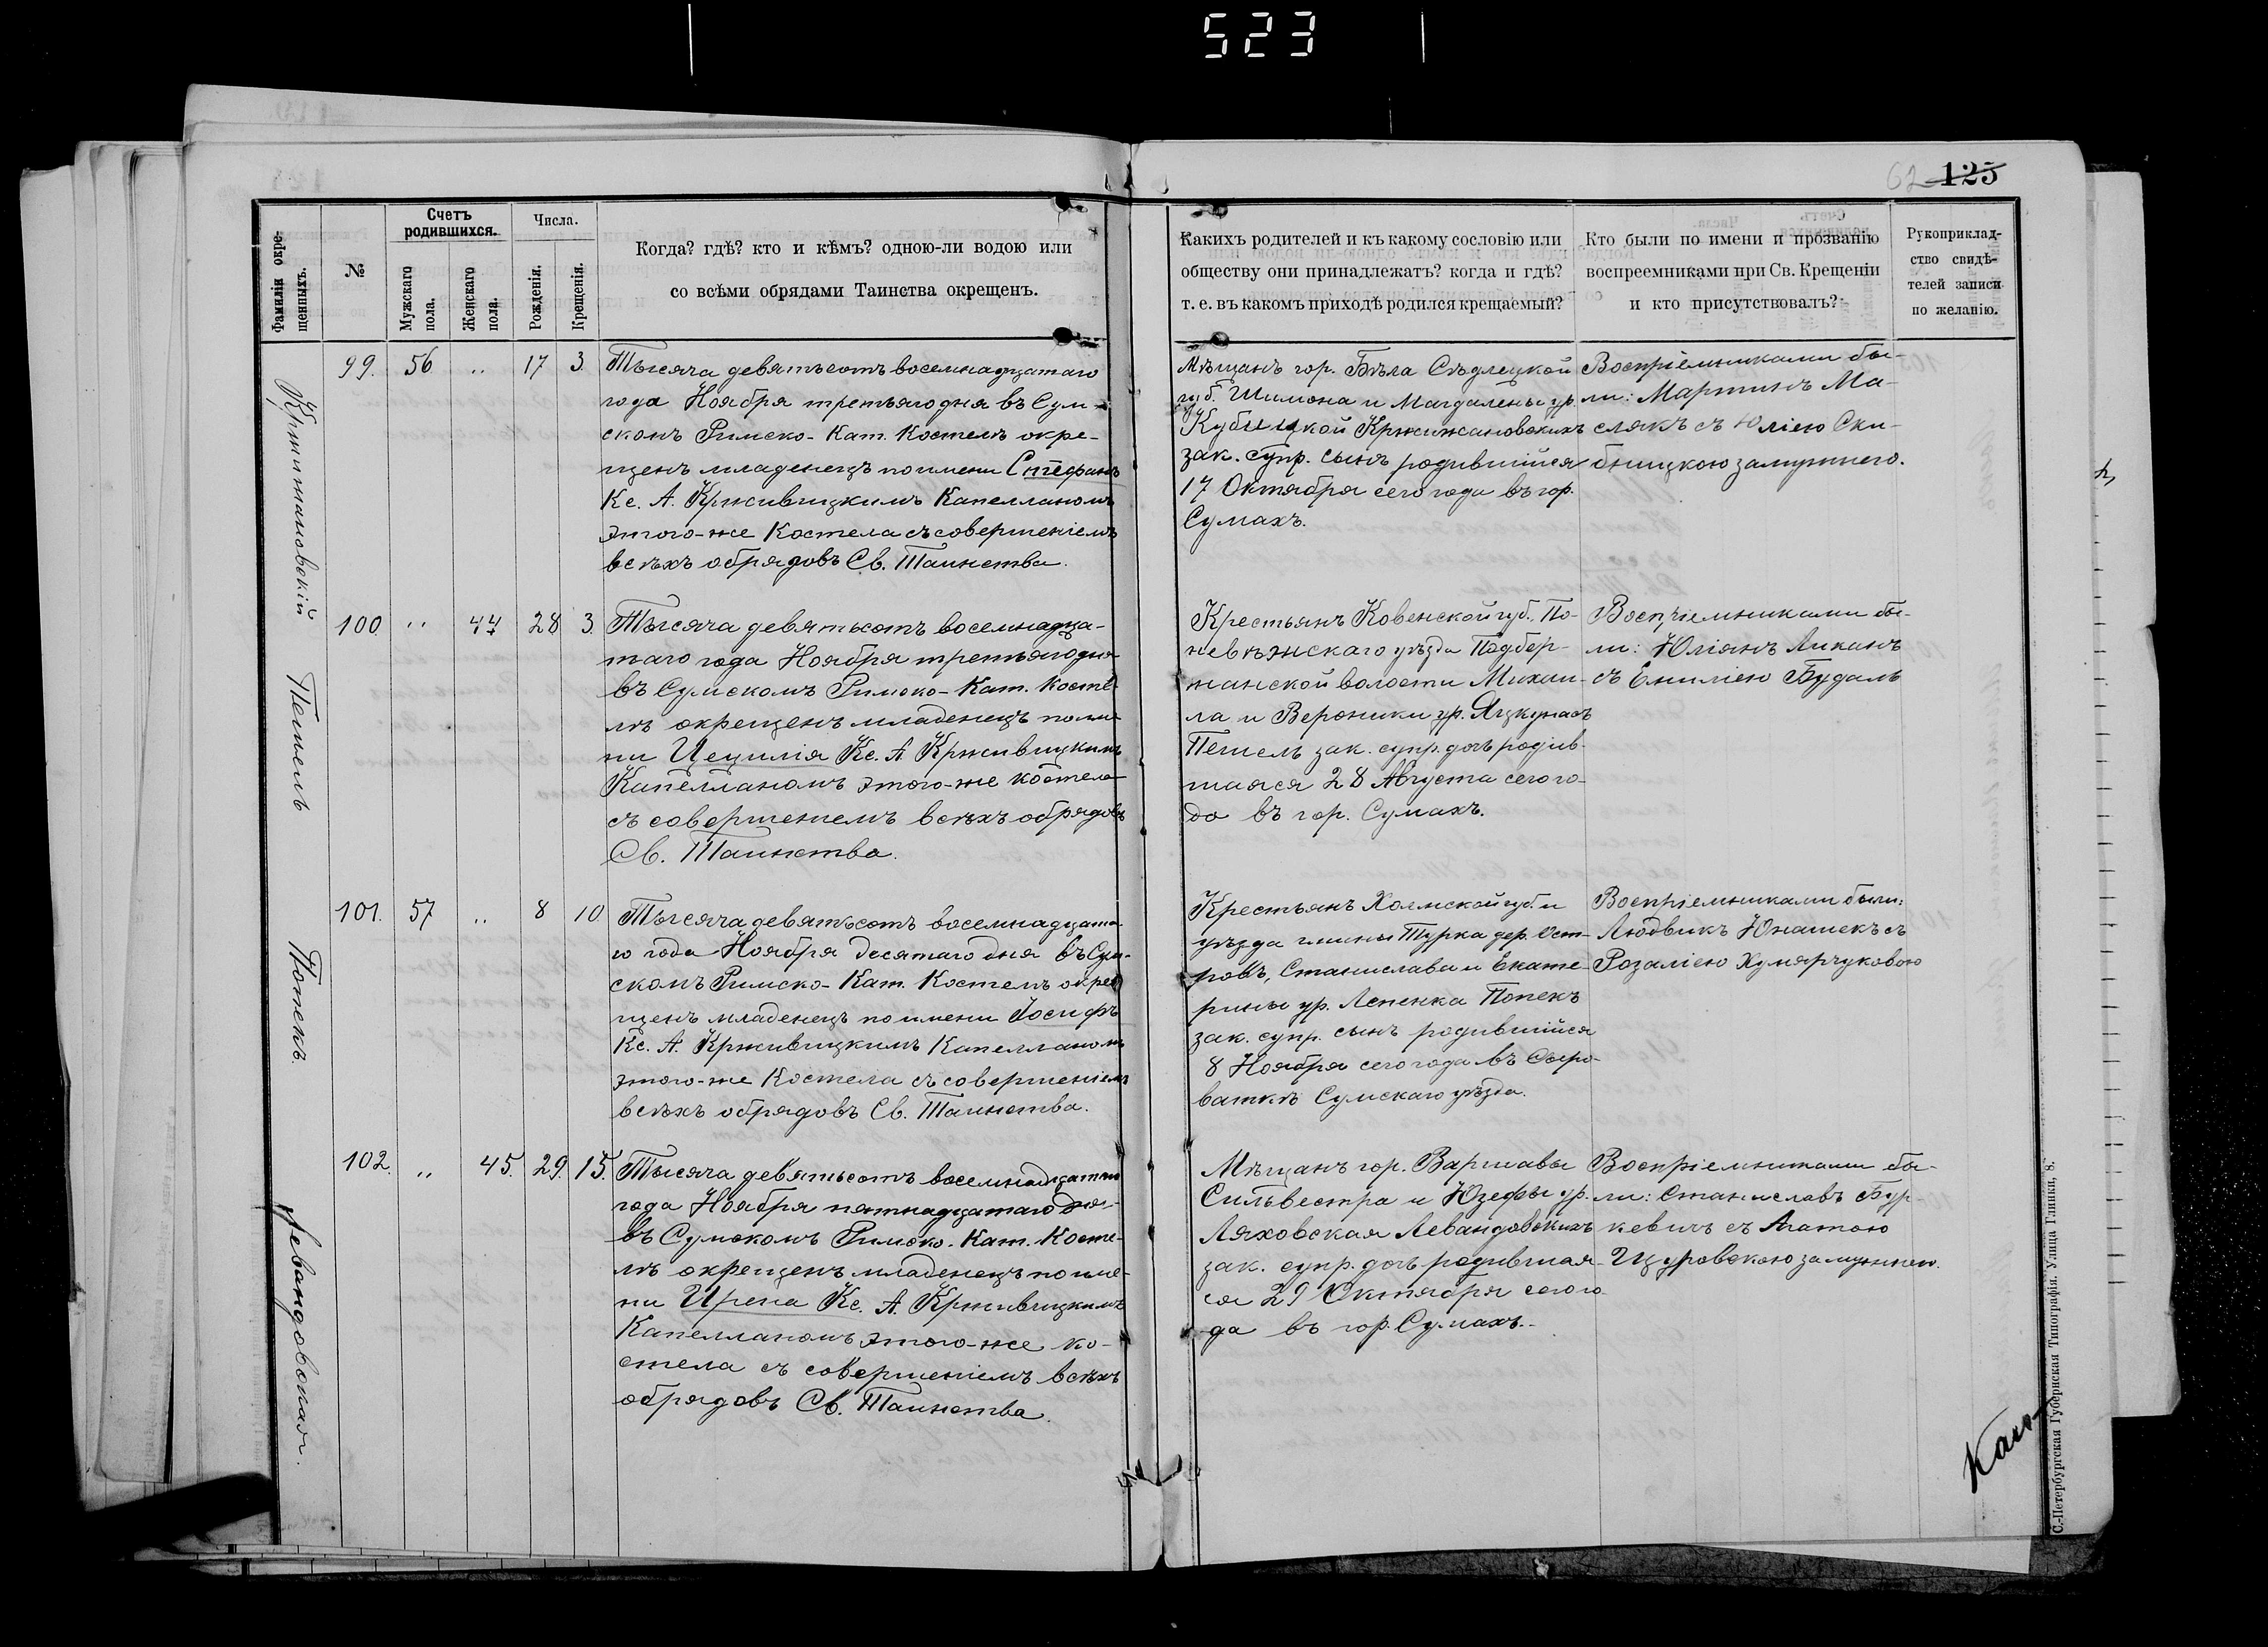 523
62 125
Фамиліи окре-
щенныхъ.
№
Счетъ
родившихся.
Мужскаго
пола.
Женскаго
пола.
Числа.
Рожденія.
Крещенія.
Когда? гдѣ? кто и кѣмъ? одною-ли водою или
со всѣми обрядами Таинства окрещенъ.
Какихъ родителей и къ какому сословію или
обществу они принадлежатъ? когда и гдѣ?
т. е. въ какомъ приходѣ родился крещаемый?
Кто были по имени и прозванію
воспреемниками при Св. Крещеніи
и кто присутствовалъ?
Рукоприклад-
ство свидѣ-
телей записи
по желанію.
Кржижановскій
99. 56 " 17 3.
Тысяча девятьсотъ восемнадцатаго
года Ноября третьяго дня въ Сум-
скомъ Римско-Кат. Костелѣ окре-
щенъ младенецъ по имени Стефанъ
Кс. А. Крживицкимъ Капелланомъ
этого-же Костела съ совершеніемъ
всѣхъ обрядовъ Св. Таинства.
Мѣщанъ гор. Бѣла Сѣдлецкой
губ. Шимона и Магдалены ур.
Кубицкой Кржижановскихъ
зак. супр. сынъ родившійся
17 Октября сего года въ гор.
Сумахъ.
Воспріемниками бы-
ли: Мартинъ Ма-
слякъ съ Юліею Ски-
бицкою замужнею.
Пешель
100. " 44 28 3.
Тысяча девятьсотъ восемнадца-
таго года Ноября третьяго дня
въ Сумскомъ Римско-Кат. Косте-
лѣ окрещенъ младенецъ по име-
ни Цецилія Кс. А Крживицкимъ
Капелланомъ этого-же костела
съ совершеніемъ всѣхъ обрядовъ
Св. Таинства.
Крестьянъ Ковенской губ., По-
невѣжскаго уѣзда Подбер-
жанской волости Михаи-
ла и Вероники ур. Яцкунасъ
Пешель зак. супр. дочь родив-
шаяся 28 Августа сего го-
да въ гор. Сумахъ.
Воспріемниками бы-
ли: Юліянъ Аиканъ
съ Емиліею Будаль
Попекъ.
101. 57 " 8 10
Тысяча девятьсотъ восемнадцата-
го года Ноября десятаго дня въ Сум-
скомъ Римско-Кат. Костелѣ окре-
щенъ младенецъ по имени Іосифъ
Кс. А. Крживицкимъ Капелланомъ
этого-же Костела съ совершеніемъ
всѣхъ обрядовъ Св. Таинства.
Крестьянъ Холмской губ. и
уѣзда гмины Турка дер. Ост-
ровъ, Станислава и Екате-
рины ур. Лепенка Попекъ
зак. супр. сынъ родившійся
8 Ноября сего года въ Сыро-
ваткѣ Сумскаго уѣзда.
Воспріемниками были:
Людвикъ Юнашекъ съ
Розаліею Хумярчуковою
Левандовская.
102. " 45. 29. 15.
Тысяча девятьсотъ восемнадцатаго
года Ноября пятнадцатаго дня
въ Сумскомъ Римско-Кат. Косте-
лѣ окрещенъ младенецъ по име-
ни Ирена Кс. А Крживицкимъ
Капелланомъ этого-же ко-
стела съ совершеніемъ всѣхъ
обрядовъ Св. Таинства.
Мѣщанъ гор. Варшавы
Сильвестра и Юзефы ур.
Ляховская Левандовскихъ
зак. супр. дочь родившая-
ся 29 Октября сего го-
да въ гор. Сумахъ.
Воспріемниками бы-
ли: Станиславъ Бур-
кевичъ съ Агатою
Цуровскою замужнею.
С.-Петербургская Губернская Типографія. Улица Глинки, 8.